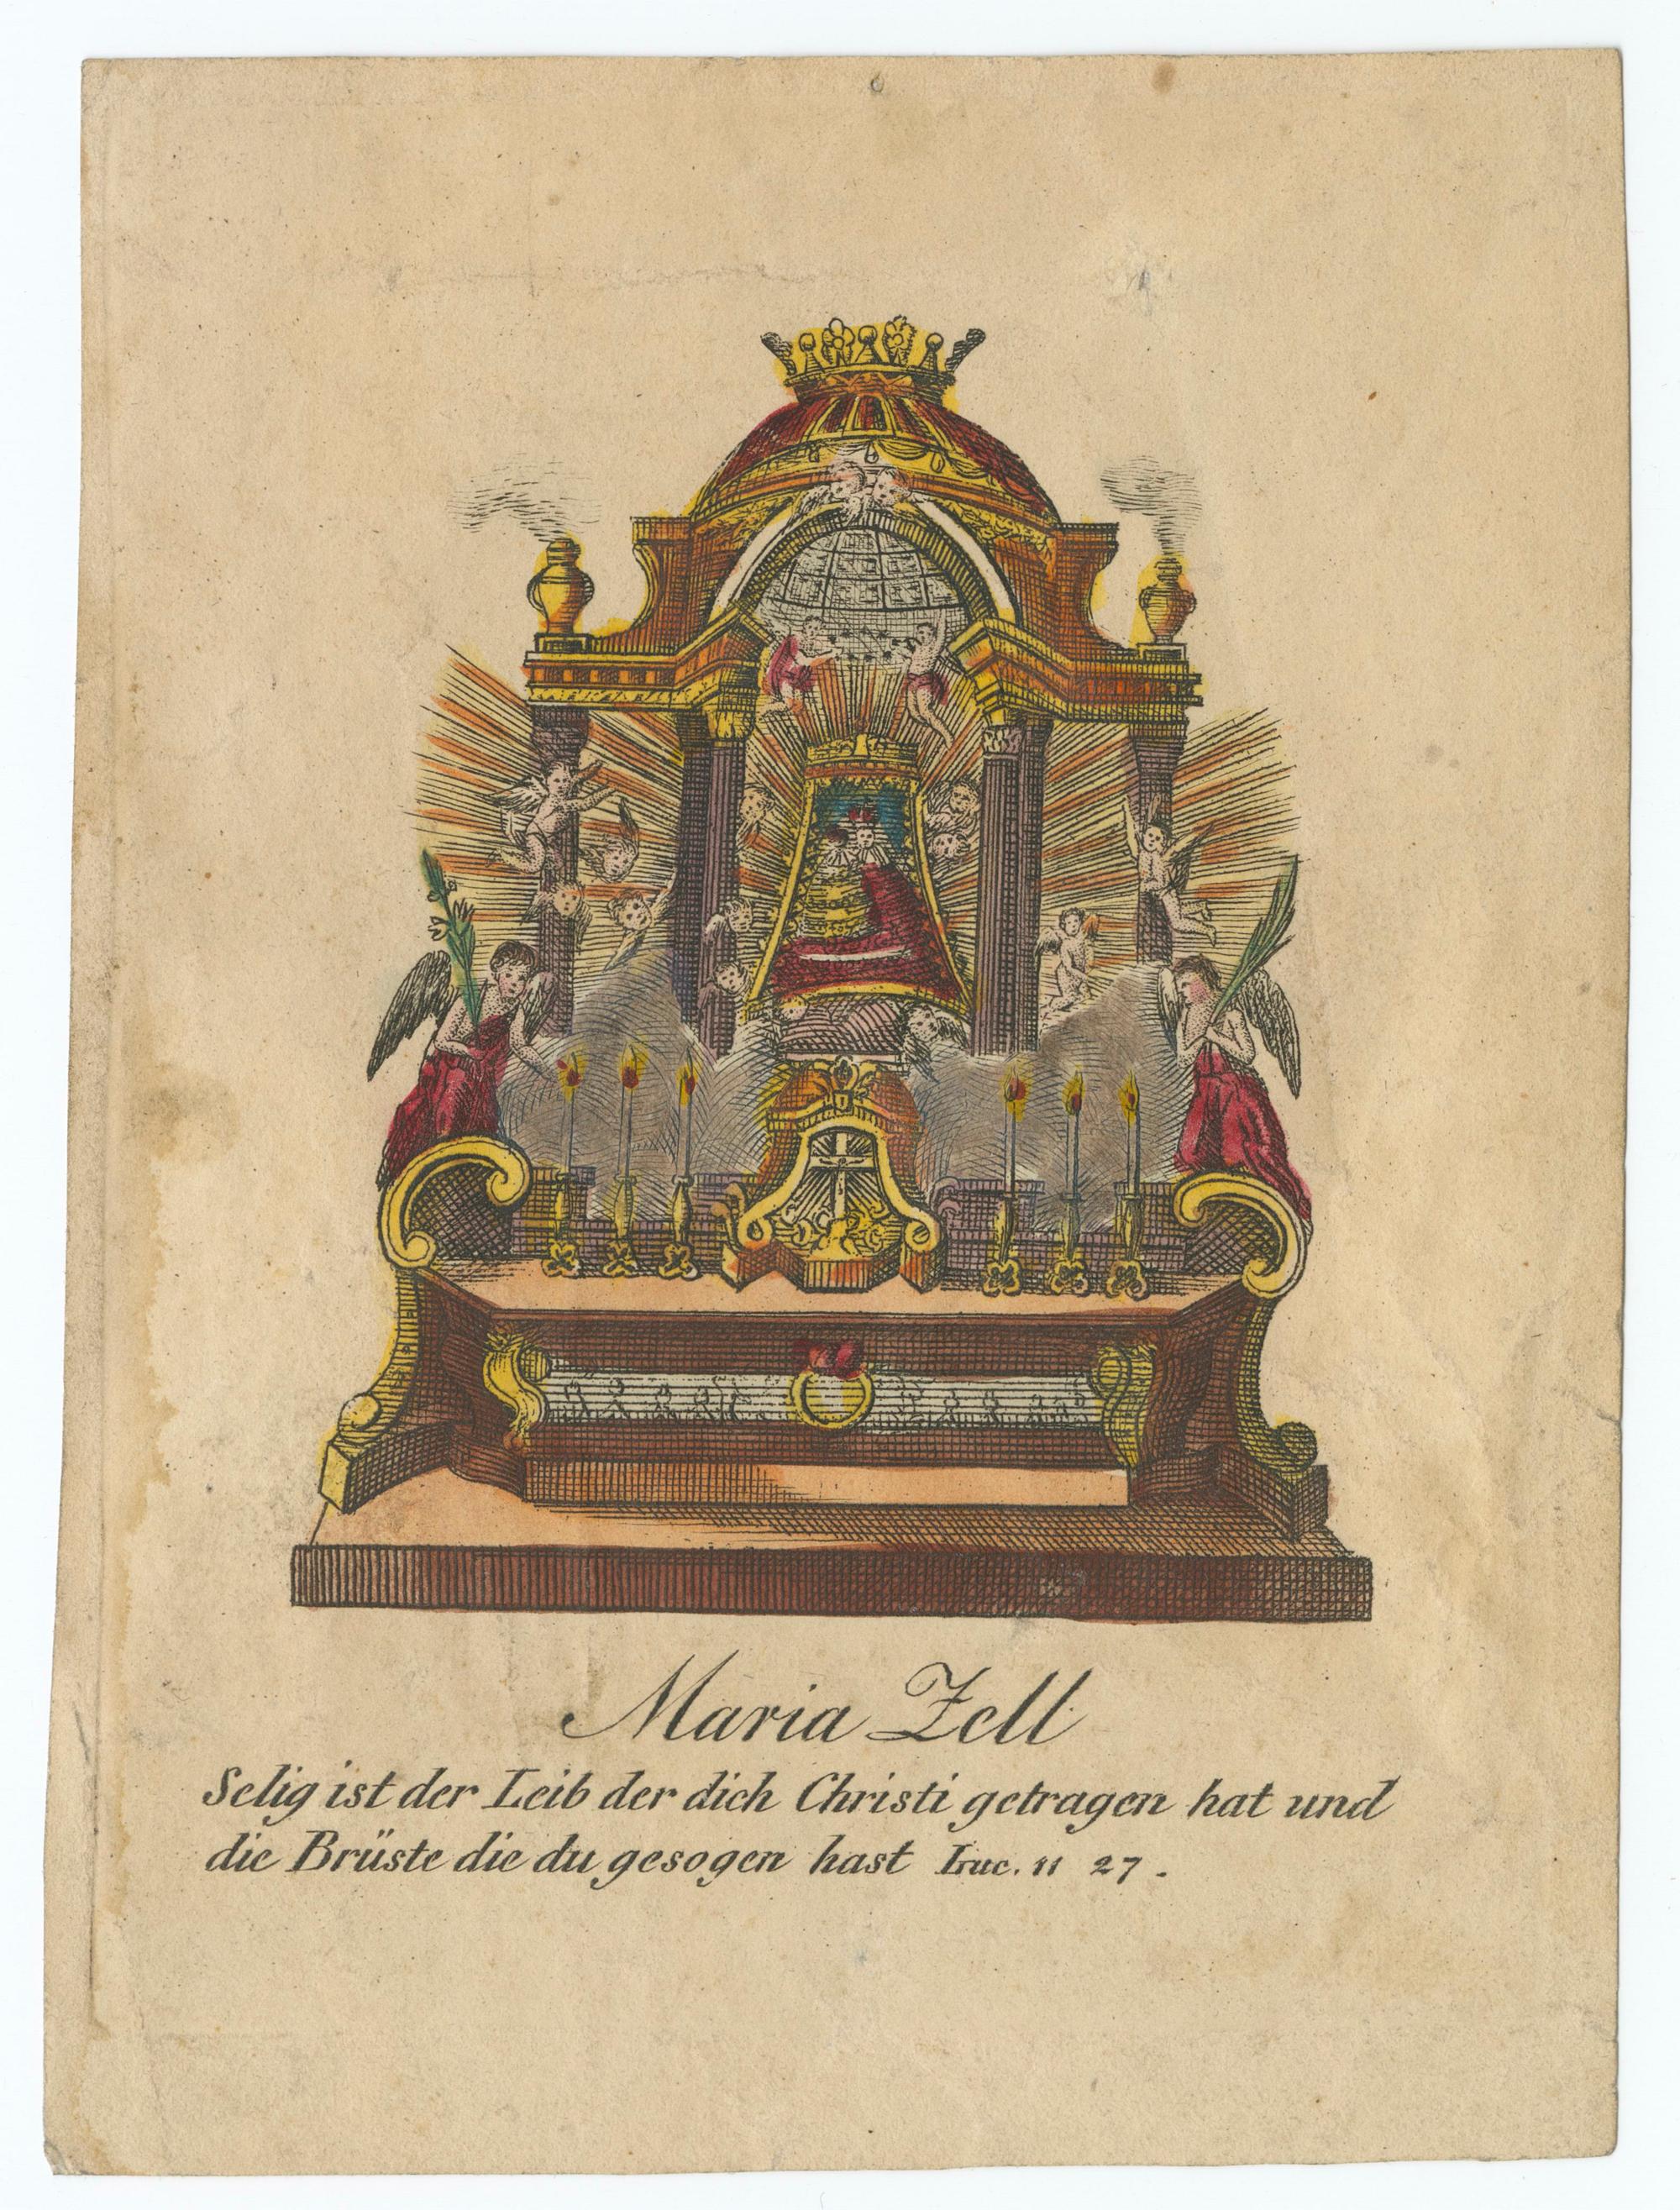 Maria Zell
Selig ist der Leib der dich Christi getragen hat und
die Brüste die du gesogen hast Luc. 11 27.